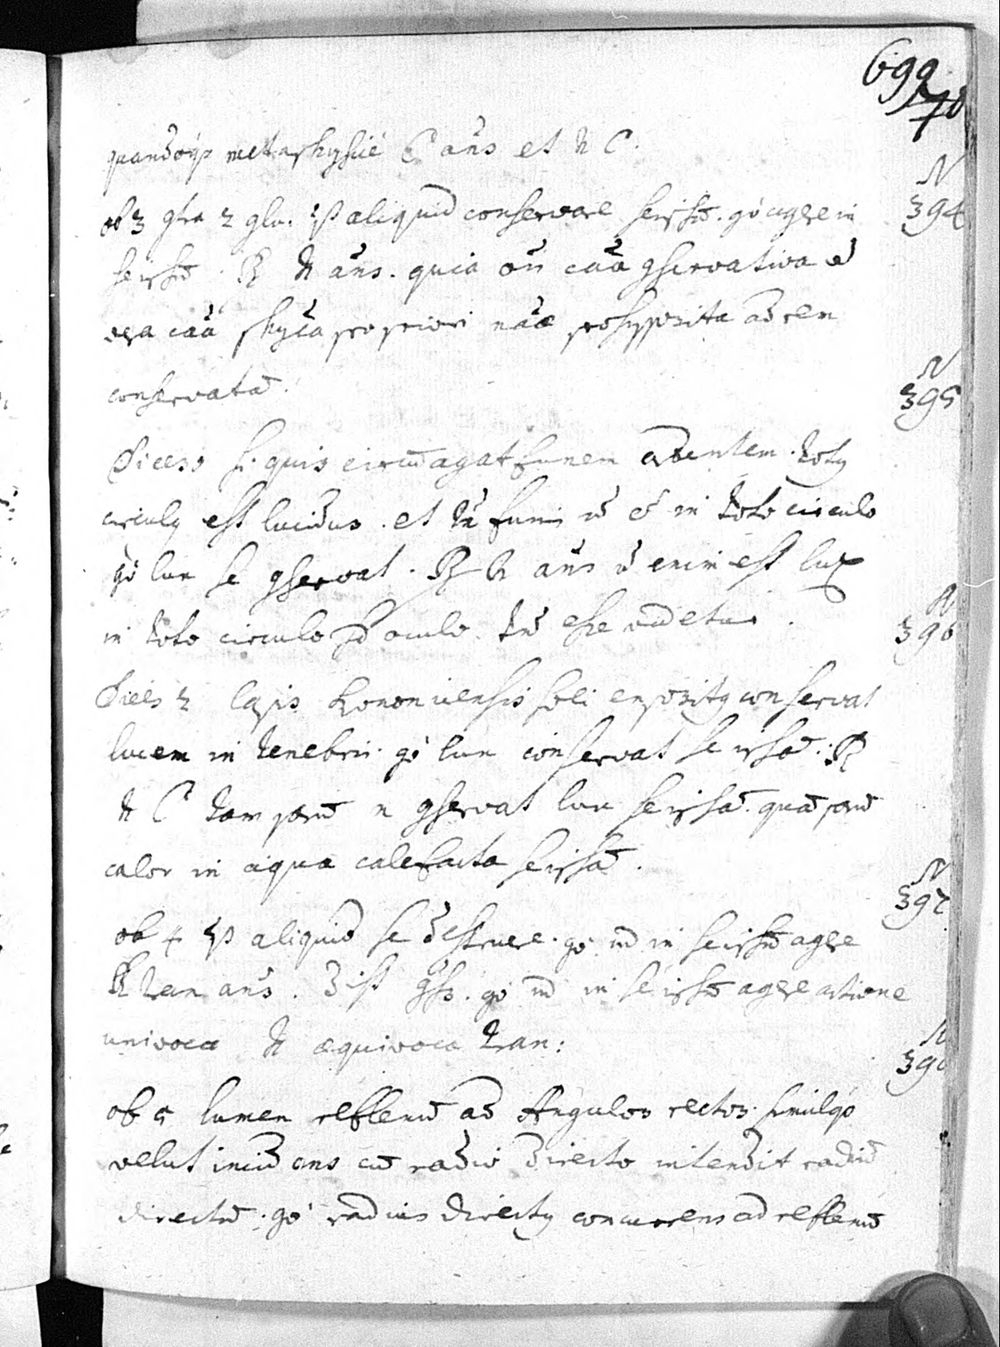 699
70
quandoq metaphysice C ans et N C.
N
394
ob 3 gtra 2 glu. pt aliquid conservare seipsū. gò agere in
seipsū. R N ans. quia oīs caūa gservativa ē
vera caūa physca pro priori nāæ prosupposita ad rem
conservatā.
N
395
Dices si quis circūagat funem ardentem. toty
circuly est lucidus. et tn funis nō ē in toto circulo
gò lux se gservat. R N ans nō enim est lux
in toto circulo sed oculo tm esse videtur.
N
396
Dices 2 lapis Bononiensis soli exposity conservat
lucem in tenebris. gò lux conservat se ipsā. R
N C tam parū n gservat lux seipsā. quā parū
calor in aqua calefacta seipsā.
N
397
ob 4 pt aliquid se destruere. gò et in seipsū agere
R tran ans. dist gss. gò et in seipsū agere actione
univoca N æquivoca tran:
N
ob 5 lumen reflexū ad Angulos rectos simulq
velut incidens cū radio directo intendit radiū
directū. gò radius directy concurrens ad reflexū